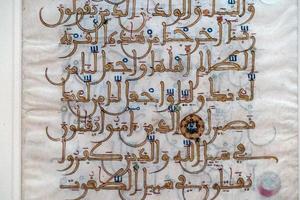 والنساء والولدن الذين يقولون
ربنا اخرجنا من هذه القرية
الظالم اهلها واجعل لنا من
لدنك وليا واجعل لنا من لدنك
نصيرا الذين امنوا يقتلون
في سبيل الله والذين كفروا
يقتلون في سبيل الطغوت